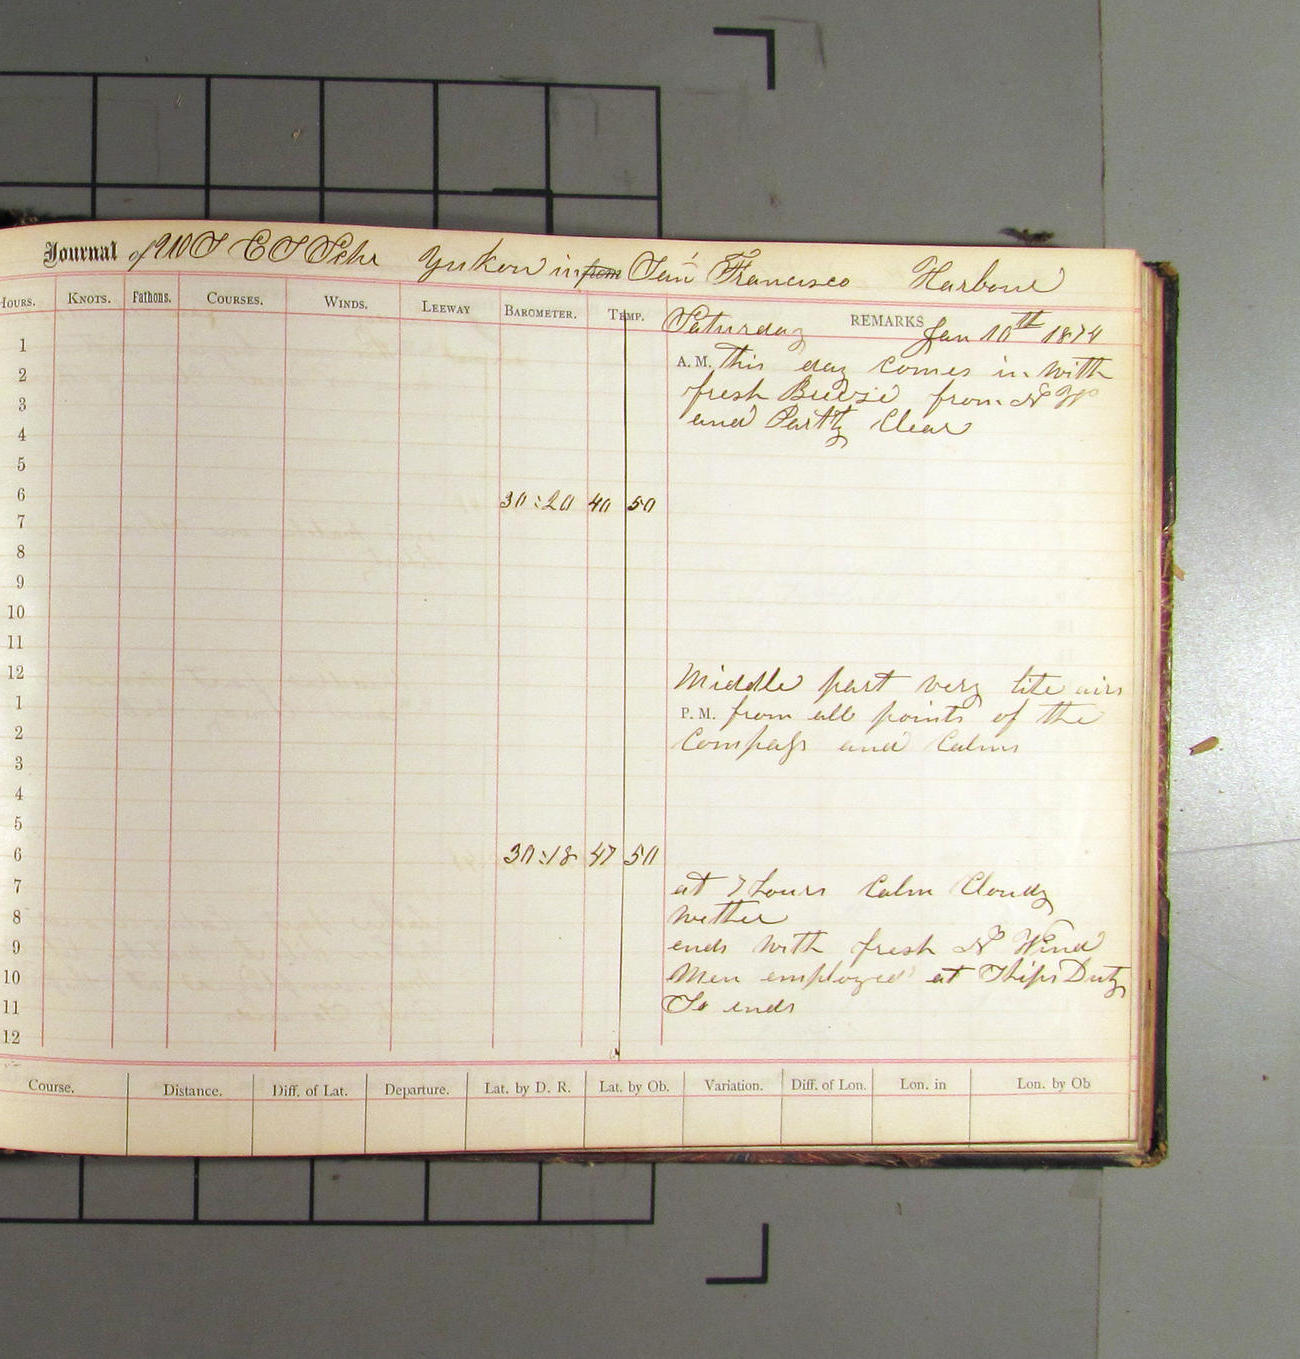 Journal of U S C S Schr Yukon in from San Francisco Harbour
Hours. Knots. Fathons. Courses. Winds. Leeway Barometer. Temp. REMARKS
Saturday Jan 10th 1874
1
A. M. This day comes in with
2
fresh Breese from N W
3
and Partty Clear
4
5
6 30:20 40 50
7
8
9
10
11
12
Middle part very lite airs
1
P. M. from all points of the
2
Compass and Calms
3
4
5
6 30:18 47 50
7
at 7 hours Calm Cloudy
8
wether
9
ends with fresh N Wind
10
Men employed at Ships Duty
11
So ends
12
Course. Distance. Diff. of Lat. Departure. Lat. by D. R. Lat. by Ob. Variation. Diff. of Lon. Lon. in Lon. by Ob